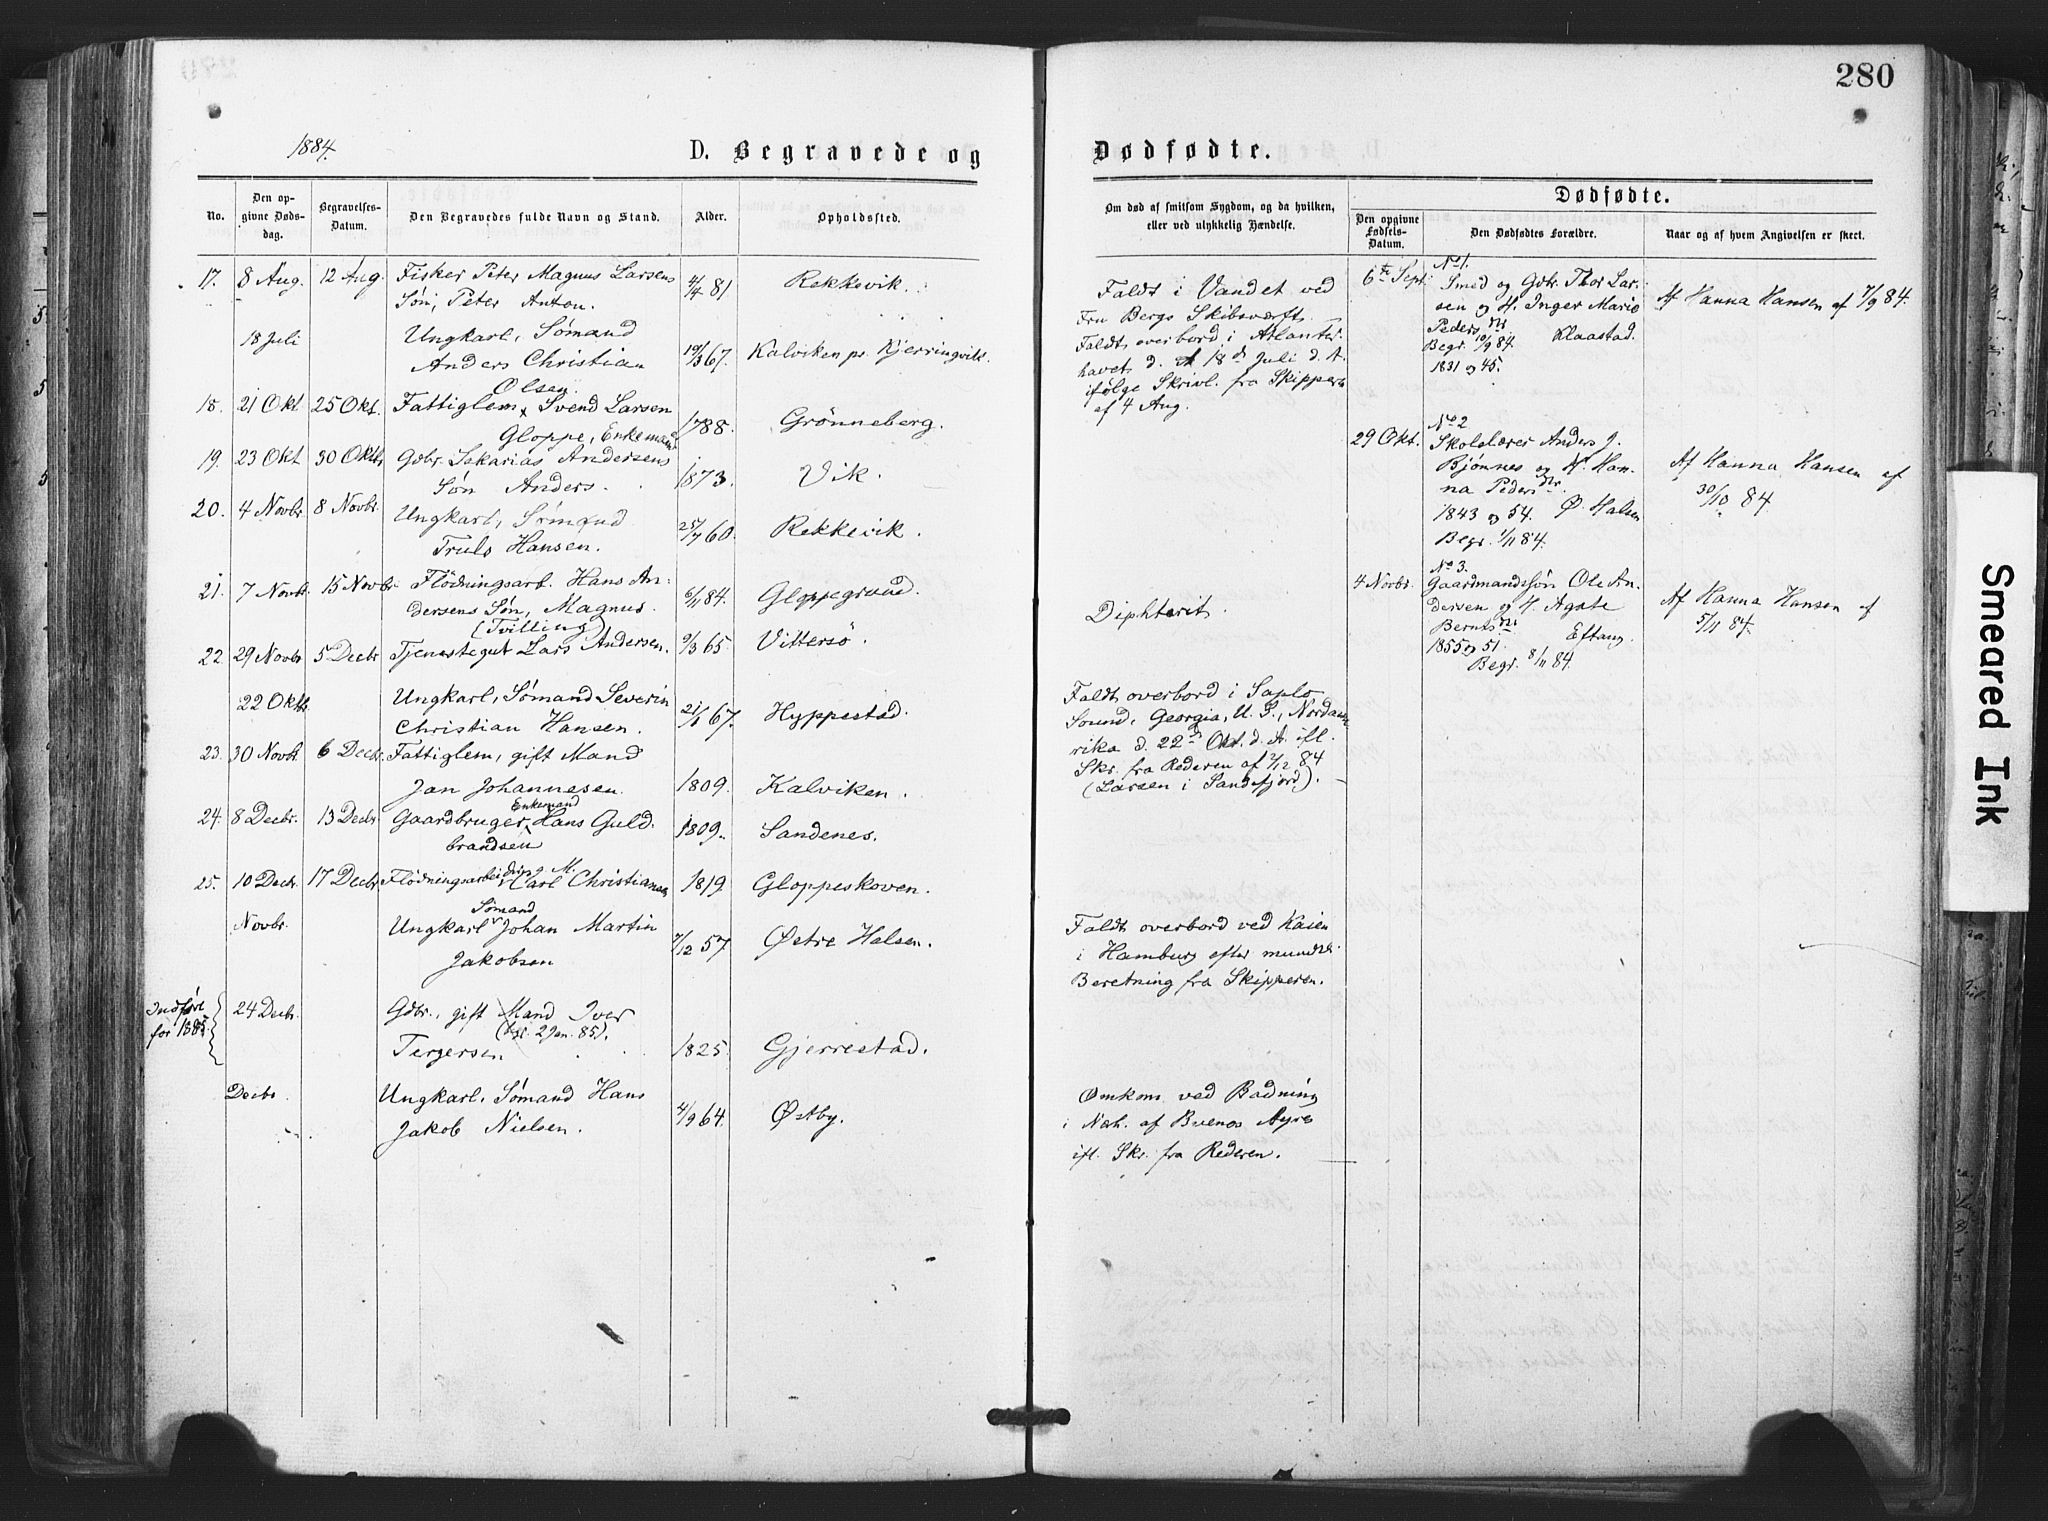 280
1884.
D. Begravede og
Dødfødte.
No.
Den opgivne Dødsdag.
Begravelses-Datum.
Den Begravedes fulde Navn og Stand.
Alder.
Opholdssted.
Om død af smitsom Sygdom, og da hvilken, eller ved ulykkelig Hændelse.
Dødfødte.
Den opgivne Fødsels-Datum.
Den Dødfødtes Forældre.
Naar og af hvem Angivelsen er skeet.
17. 8 Aug. 12 Aug. Fisker Peter Magnus Larsens 4/4 81 Rekkevik.
Søn, Peter Anton.
Faldt i Vandet ved
Fru Bergs Skibsværft.
18 Juli Ungkarl, Sømand
Anders Christian 19/3 67. Kalviken pr. Kjerringvik.
Olsen.
Faldt overbord i Atlanter-
havet d. 18d Juli d. A.
ifølge Skrivl. fra Skipperen
af 4 Aug.
18. 21 Okt 25 Okt. Fattiglem, Svend Larsen
Gloppe, Enkemand 1788. Grønneberg.
19. 23 Okt 30 Oktb Gdbr. Sakarias Andersens
Søn Anders. 1873. Vik.
20. 4 Novbr 8 Novbr. Ungkarl, Sømand
Truls Hansen. 25/7 60. Rekkevik.
21. 7 Novbr. 15 Novbr Flödningsarb. Hans An-
dersens Søn, Magnus. 6/11 84. Gloppegraad.
(Tvilling)
Diphterit.
22. 29 Novbr 5 Decbr Tjenestegut Lars Andersen. 9/3 65. Vittersö.
22 Oktb. Ungkarl, Sømand Severin
Christian Hansen. 21/1 67. Hyppestad.
Faldt overbord i Saplo
Sound, Georgia, U. S., Nordame-
rika d. 22d Okt. d. A. ifl.
Skr. fra Rederen af 7/12 84
(Larsen i Sandefjord).
23. 30 Novbr 6 Decbr. Fattiglem, gift Mand
Jan Johannesen. 1809. Kalviken.
24. 8 Decbr. 13 Decbr Gaardbruger, Enkemand Hans Guld-
brandsen 1809. Sandenes.
25. 10 Decbr. 17 Decbr Flödningsarbeider, g. M. Carl Christiansen 1819 Gloppeskoven.
Novbr. Ungkarl Sømand Johan Martin
Jakobsen 7/12 57. Østre Halsen.
Faldt overbord ved Kaien
i Hamburg efter mundtl.
Beretning fra Skipperen.
Indført
for 1885.
24 Decbr. Gdbr., gift Mand Iver
(bgr. 2 Jan. 85).
Tergersen 1825. Gjerrestad.
Decbr. Ungkarl, Sømand Hans
Jakob Nielsen. 4/9 64. Østby.
Omkom ved Badning
i Nærh. af Buenos Ayres
ifl. Skr. fra Rederen.
6te Sept. No 1.
Smed og Gdbr. Thor Lar-
sen og H. Inger Marie
Pedersdtr Klaastad.
Begr. 10/9 84.
1831 og 45.
Af Hanna Hansen af 7/9 84.
29 Okt. No 2
Skolelærer Anders J.
Bjønnes og H. Han-
na Pedersdtr.
1843 og 54. Ø. Halsen
Begr. 1/11 84.
Af Hanna Hansen af
30/10 84.
4 Novbr. No 3.
Gaardmandssøn Ole An-
dersen og H. Agate
Berntsdtr
1855 og 51. Eftang.
Begr. 8/11 84.
Af Hanna Hansen af
5/11 84.
Smeared Ink